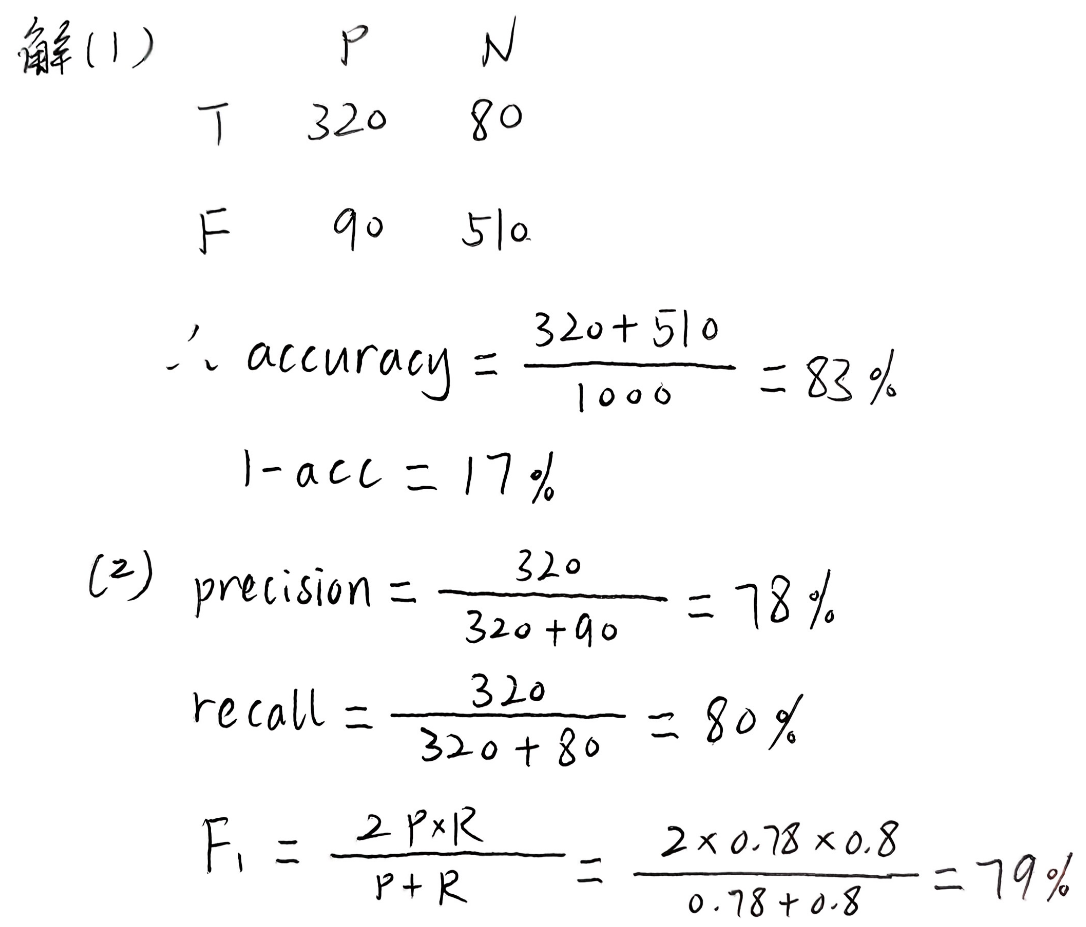 解(1) P N
T 320 80
F 90 510
∴ accuracy = (320+510)/1000 = 83%
1-acc = 17%
(2) precision = 320/(320+90) = 78%
recall = 320/(320+80) = 80%
F₁ = 2P×R/(P+R) = (2×0.78×0.8)/(0.78+0.8) = 79%